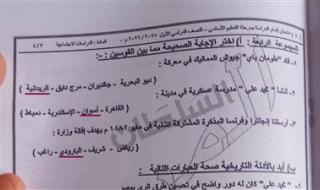 امتحان إتمام الدراسة بمرحلة التعليم الأساسي - الفصل الدراسي الأول ٢٠٢٥/ ٢٠٢٦م - المادة : الدراسات الاجتماعية ٤/٣
المجموعة الرابعة : أ) اختر الإجابة الصحيحة مما بين القوسين :
١- قاد "طومان باي" جيوش المماليك في معركة :
(ديو البحرية - جالديران - مرج دابق - الريدانية )
٢- أنشأ " محمد علي " مدرسة عسكرية في مدينة :
(القاهرة - أسوان - الإسكندرية - دمياط )
٣- أرسلتا إنجلترا وفرنسا المذكرة المشتركة الثانية في مايو ١٨٨٢م بهدف إقالة وزارة :
( رياض - شريف - البارودي - راغب )
ب) أيد بالأدلة التاريخية صحة العبارات التالية :
١- " محمد علي" كان له دور واضح في تحسين طرق الري